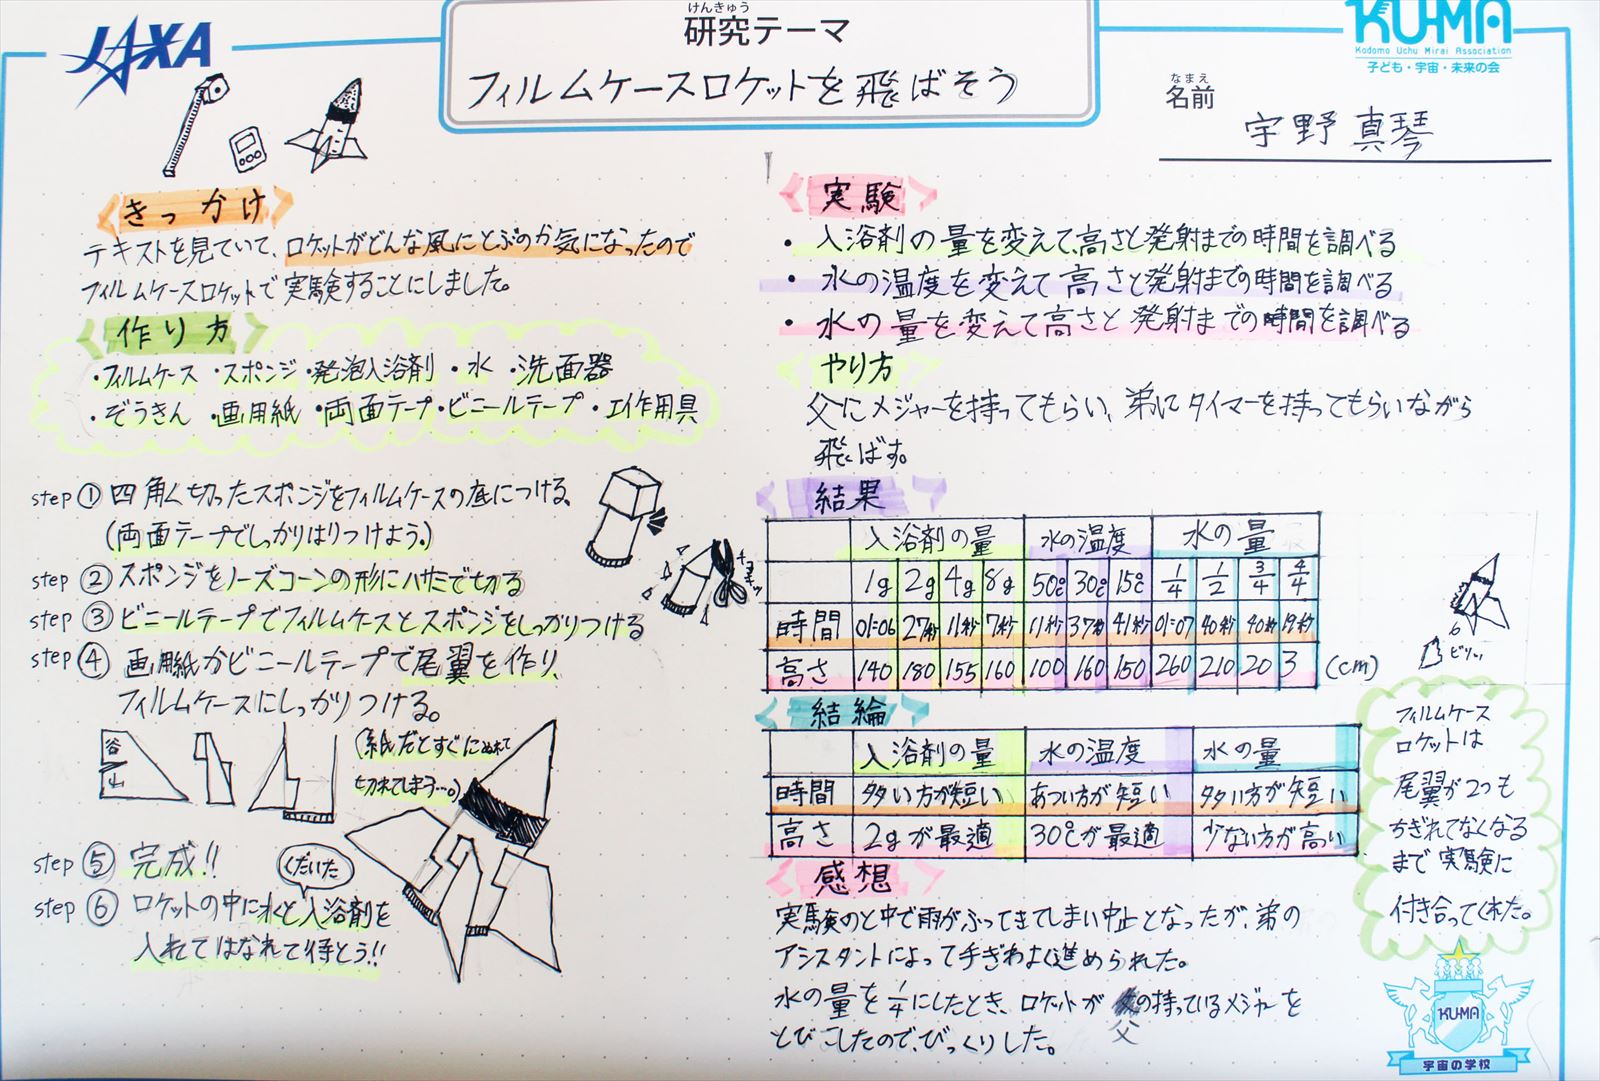 JAXA
けんきゅう
研究テーマ
フィルムケースロケットを飛ばそう
KU-MA
Kodomo Uchu Mirai Association
子ども・宇宙・未来の会
なまえ
名前
宇野 真琴
きっかけ
テキストを見ていて、ロケットがどんな風にとぶのか気になったので
フィルムケースロケットで実験することにしました。
作り方
・フィルムケース ・スポンジ ・発泡入浴剤 ・水 ・洗面器
・ぞうきん ・画用紙 ・両面テープ ・ビニールテープ ・工作用具
step ① 四角く切ったスポンジをフィルムケースの底につける。
(両面テープでしっかりはりつけよう。)
step ② スポンジをノーズコーンの形にハサミで切る
step ③ ビニールテープでフィルムケースとスポンジをしっかりつける
step ④ 画用紙かビニールテープで尾翼を作り、
フィルムケースにしっかりつける。
谷
山
(紙だとすぐにぬれて
切れてしまう…。)
step ⑤ 完成!!
くだいた
step ⑥ ロケットの中に水と入浴剤を
入れてはなれて待とう!!
実験
・入浴剤の量を変えて、高さと発射までの時間を調べる
・水の温度を変えて高さと発射までの時間を調べる
・水の量を変えて高さと発射までの時間を調べる
やり方
父にメジャーを持ってもらい、弟にタイマーを持ってもらいながら
飛ばす。
結果
入浴剤の量 水の温度 水の量
1g 2g 4g 8g 50℃ 30℃ 15℃ 1/4 1/2 3/4 4/4
時間 01:06 27秒 11秒 7秒 11秒 37秒 41秒 01:07 40秒 40秒 19秒
高さ 140 180 155 160 100 160 150 260 210 20 3 (cm)
結論
入浴剤の量 水の温度 水の量
時間 多い方が短い あつい方が短い 多い方が短い
高さ 2gが最適 30℃が最適 少ない方が高い
フィルムケース
ロケットは
尾翼が2つも
ちぎれてなくなる
まで実験に
付き合ってくれた。
感想
実験のと中で雨がふってきてしまい中止となったが、弟の
アシスタントによって手ぎわよく進められた。
水の量を1/4にしたとき、ロケットが父の持っているメジャーを
とびこしたので、びっくりした。
KU-MA
宇宙の学校